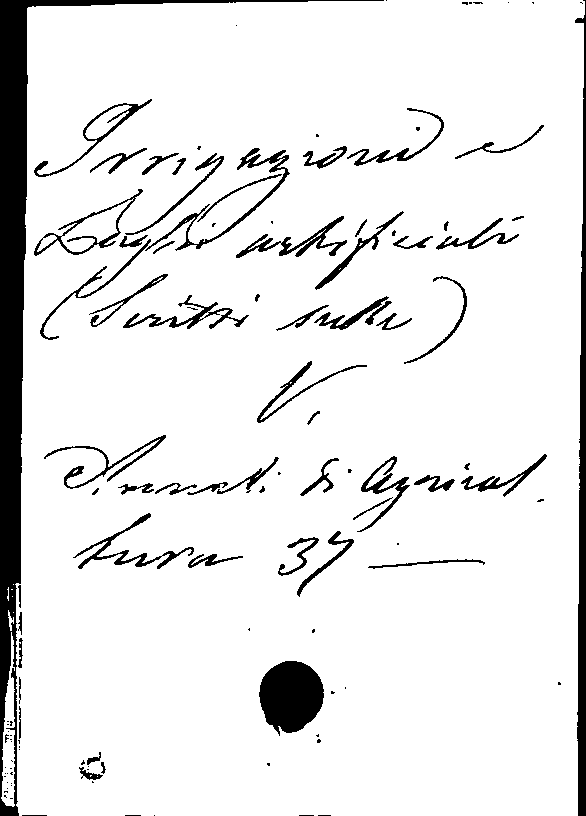 Irrigazioni e
Laghi artificiali
(Scritti sulle)
V.
di Agricol
tura 37 —